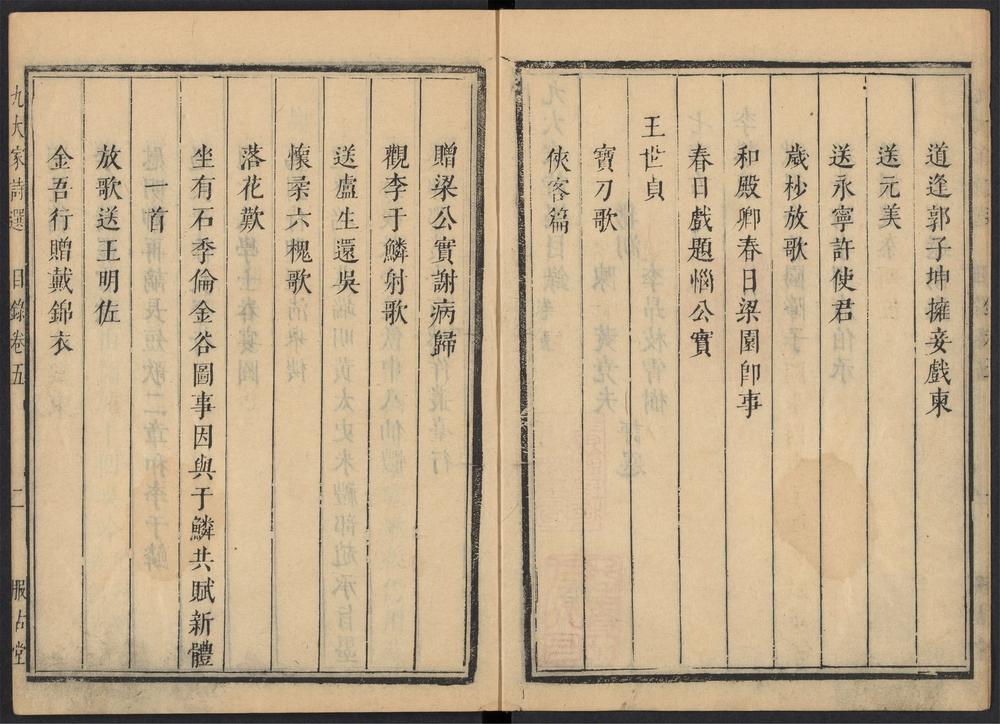 道逢郭子坤擁妾戲柬
送元美
送永寧許使君
歲杪放歌
和殿卿春日梁園卽事
春日戲題惱公實
王世貞
寶刀歌
俠客篇
贈梁公實謝病歸
觀李于鱗射歌
送盧生還吳
懷桒六槐歌
落花歎
坐有石季倫金谷圖事因與于鱗共賦新體
一首
放歌送王明佐
金吾行贈戴錦衣
九大家詩選 目錄卷五 二 服古堂